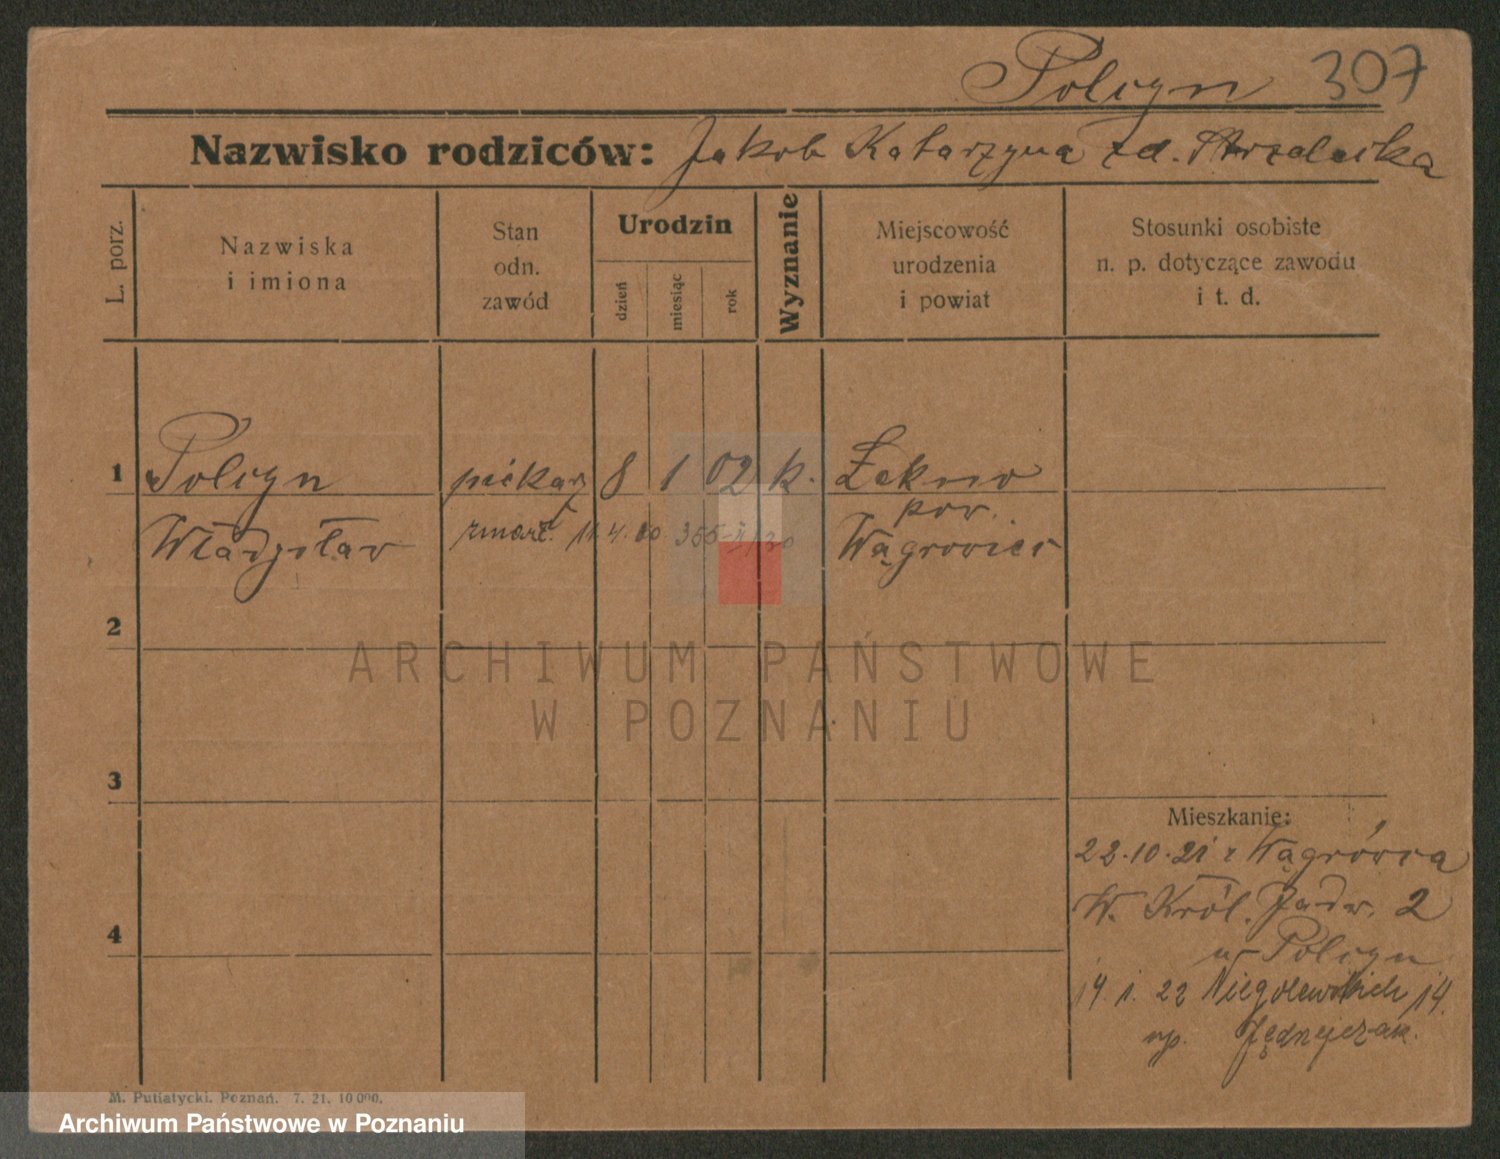 Polczyn 307
Nazwisko rodziców: Jakob Katarzyna zd.
L. porz.
Nazwiska
i imiona
Stan
odn.
zawód
Urodzin
dzień
miesiąc
rok
Wyznanie
Miejscowość
urodzenia
i powiat
Stosunki osobiste
n. p. dotyczące zawodu
i t. d.
1 Polczyn piekarz 8 1 02 k. Łekno
pow.
Władysław zmarł. 11.4.
Wągrowiec
2
3
4
Mieszkanie:
22.10.21 z Wągrówca
W. Król. Jadw. 2
u Polczyn
14. 1. 22 Niegolewskich 14.
up. Jędrzejczak.
M. Putiatycki. Poznań. 7. 21. 10000.
ARCHIWUM PAŃSTWOWE
W POZNANIU
Archiwum Państwowe w Poznaniu